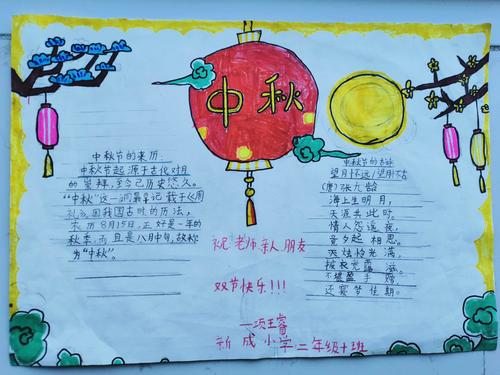 中秋
中秋节的来历:
中秋节起源于古代对月
的崇拜,至今已历史悠久。
“中秋”这一词最早记载于《周
礼》。因我国古时的历法,
农历8月15日,正好是一年的
秋季,而且是八月中旬,故称
为“中秋”。
中秋节的古诗
望月怀远/望月怀古
(唐)张九龄
海上生明月,
天涯共此时。
情人怨遥夜,
竟夕起相思。
灭烛怜光满,
披衣觉露滋。
不堪盈手赠,
还寝梦佳期。
祝老师.亲人.朋友
双节快乐!!!
—项王睿
新成小学:二年级十班